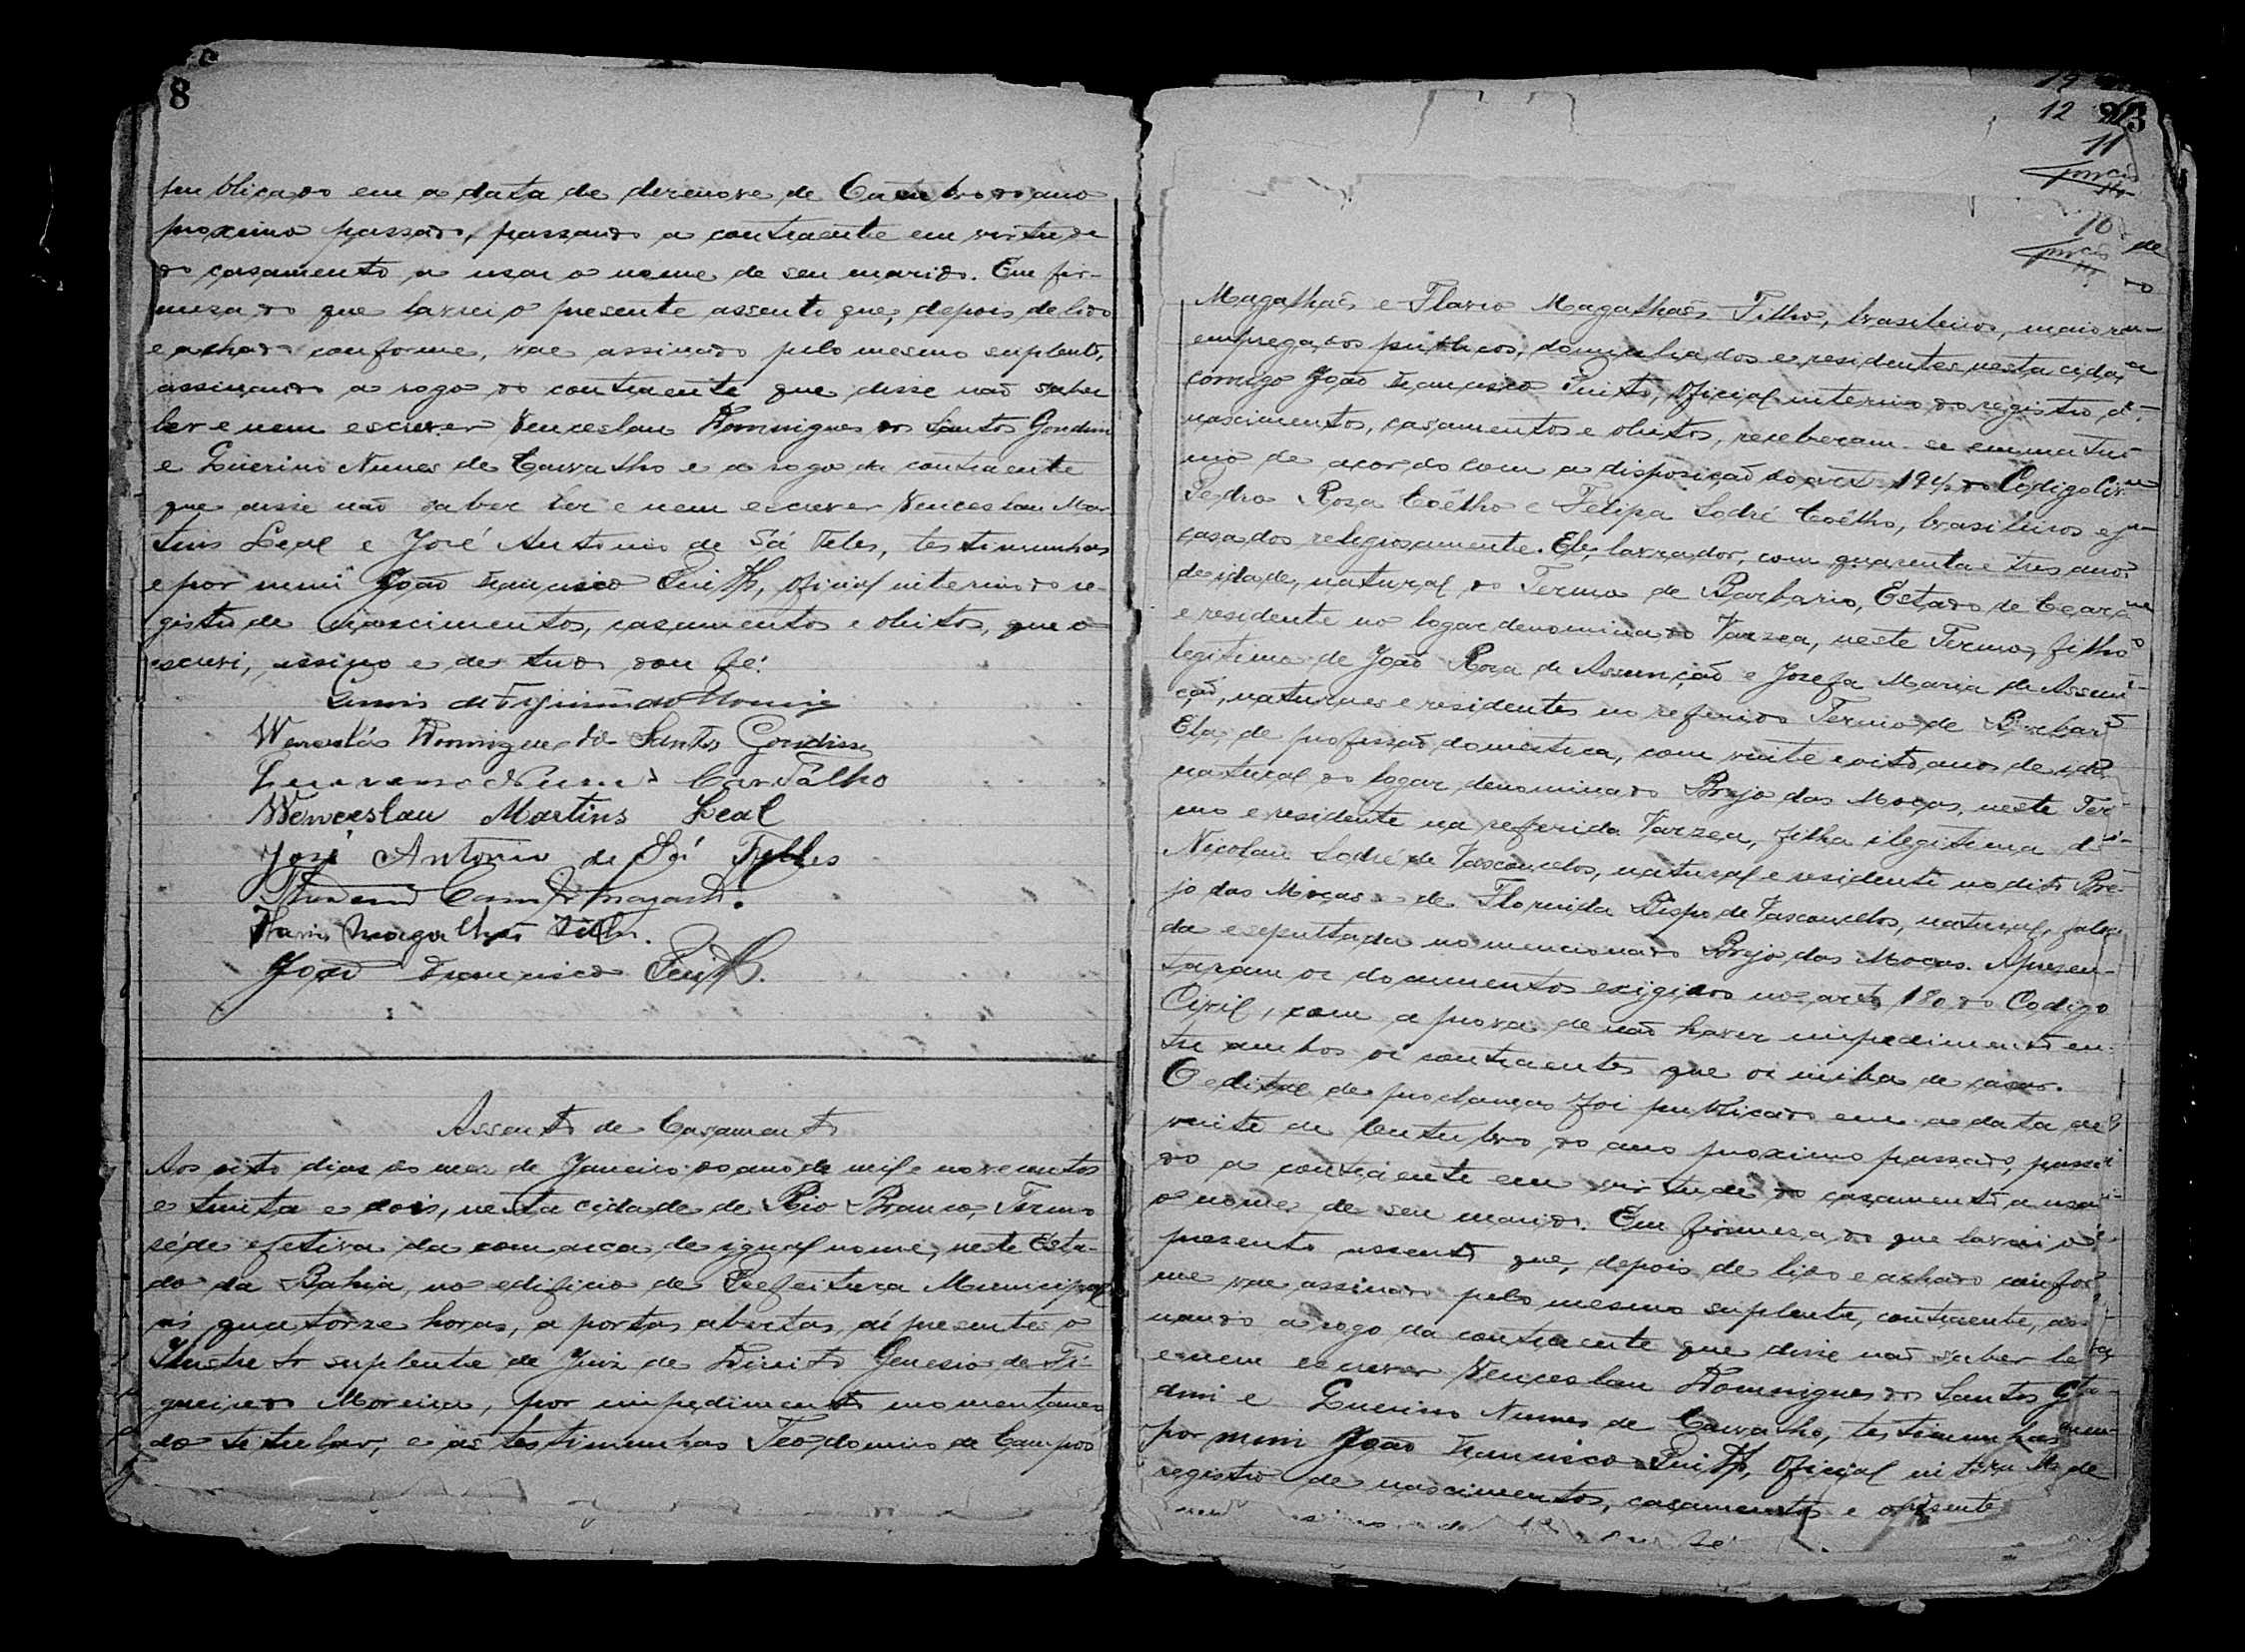 8
publicado em a data de desenove de Outubro do ano
proximo passado, passando a contraente em virtude
do casamento a usar o nome de seu marido. Em fir-
mesa do que lavrei o presente assento que, depois de lido
e achado conforme, vae assinado pelo mesmo suplente,
assinando a rogo do contraente que disse não saber
ler e nem escrever Venceslau Domingues dos Santos Gondim
e Guerino Nunes de Carvalho e a rogo da contraente
que disse não saber ler e nem escrever Venceslau Mar
tins Leal e José Antonio de Sá Teles, testimunhas
e por mim João Francisco , oficial interino do re-
gistro de nascimentos, casamentos e obitos, que o
escrevi, assino e de tudo dou fé.
de Figueirêdo Moreira
Wenceslás Domingues dos Santos Gondim
Nunes Carvalho
Wenceslau Martins Leal
José Antonio de Sá Telles
Magalhães Filho.
João Francisco
Assento de Casamento
Aos oito dias do mes de Janeiro do ano de mil e novecentos
e trinta e dois, nesta cidade de Rio Branco, Termo
séde efetiva da comarca de igual nome, neste Esta-
do da Bahia, no edificio de Prefeitura Municipal
ás quatorze horas, a portas abertas, aí presentes o
Ilustre Dr suplente de Juiz de Direito Genesio de Fi-
gueiredo Moreira, por impedimento momentaneo
do titular, e as testimunhas Teodomiro de Campos
12
23
11
10
Magalhaês e Flavio Magalhaês Filho, brasileiros, maiores
empregados publicos, domiciliados e residentes nesta cida
comigo João Francisco , Oficial interino do registro de
nascimentos, casamentos e obitos, receberam-se em matri
mo de acordo com a disposição do art. 194 do Codigo Civ
Pedro Rosa Coêlho e Felipa Sodré Coêlho, brasileiros e
casados religiosamente. Ele, lavrador, com quarenta e tres anos
de idade, natural do Termo de Barbario, Estado de Ceará
e residente no logar denominado Varzea, neste Termo, filho
legitimo de João Rosa de Assunção e Josefa Maria de Assun-
ção, naturaes e residentes no referido Termo de
Ela, de profissão domestica, com vinte e oito anos de ida
natural do logar denominado Brejo das Moças, neste Ter-
mo e residente na referida Varzea, filha ilegitima d
Nicolau Sodré de Vasconcelos, natural e residente no dito Bre-
jo das Moças e de Florinda Bispo de Vasconcelos, natural, faleci
da e sepultada no mencionado Brejo das Moças. Apresen-
taram os documentos exigidos no art. 180 do Codigo
Civil, com a prova de não haver impedimento en-
tre ambos os contraentes que os iniba de casar.
O edital de proclamas foi publicado em a data de
vinte de Outubro do ano proximo passado, passan
do a contraente em virtude do casamento a usar
o nome de seu marido. Em firmesa do que lavrei o
presente assento que, depois de lido e achado confor
me vae assinado pelo mesmo suplente, contraente, assi
nando a rogo da contraente que disse não saber le
e nem escrever Venceslau Domingues dos Santos
dim e Guerino Nunes de Carvalho, testimunhas
por mim João Francisco , Oficial interino
registro de nascimentos, casamentos e